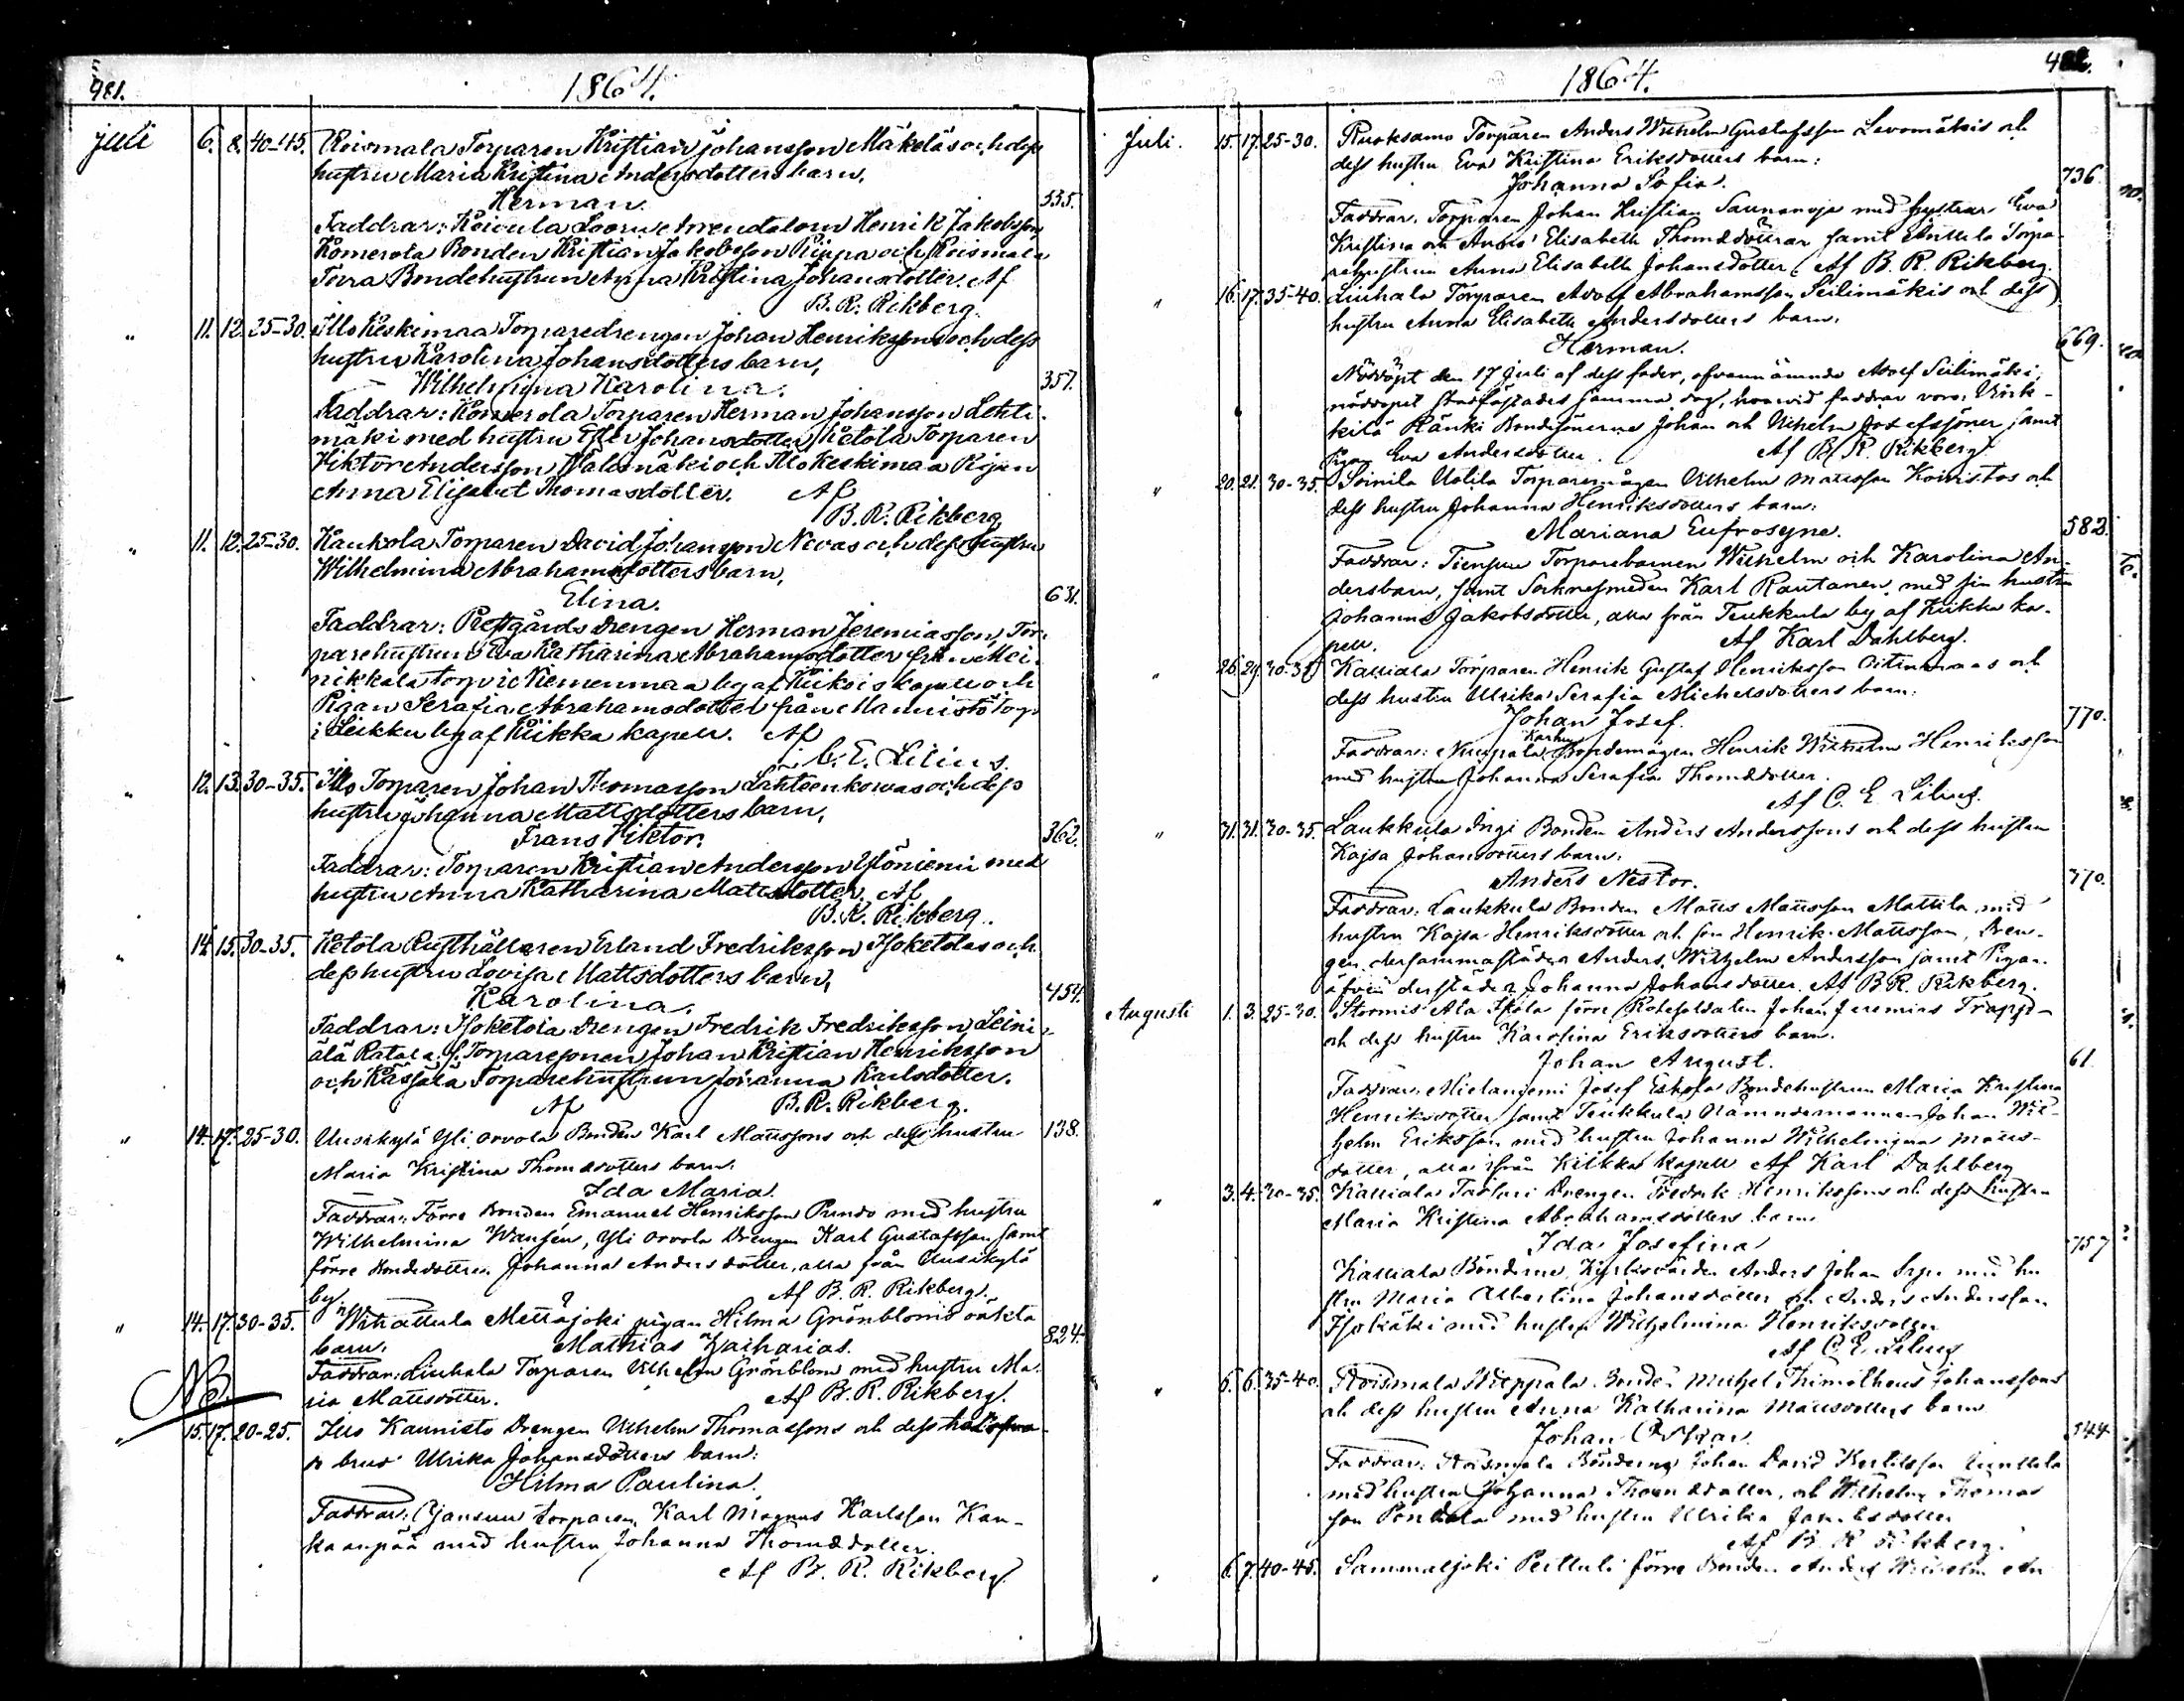 481.
1864.
juli 6. 8. 40-45. Roismala Torparen Kristian Johansson Mäkeläs och dess
hustru Maria Kristina Andersdotters barn,
Herman. 555.
Faddrar: Koivula Arrendatorn Henrik Jakobsson,
Komerola Bonden Kristian Jakobsson Pippa och Roismala
Bondehustrun Kristina Johansdotter. Af
B. R. Rikberg.
" 11. 12. 25-30. Illo Keskimaa Torparedrengen Johan Henrikssons och dess
hustru Karolina Johansdotters barn,
Wilhelmina Karolina. 357.
Faddrar: Komerola Torparen Herman Johansson Lehti-
mäki med hustru Ester Johansdotter, Ketola Torparen
Viktor Andersson och Illo Keskimaa Pigan
Anna Elisabet Thomasdotter. Af
B. R. Rikberg.
" 11. 12. 25-30. Kaukola Torparen David Johansson Nevas och dess hustru
Wilhelmina Abrahamsdotters barn,
Elina. 631.
Faddrar: Prestgårds Drengen Herman Jeremiasson, Tor-
parehustrun Eva Katharina Abrahamsdotter från Mei-
nikkala torp i Niemenmaa by af Kiikois kapell och
Pigan Serafia Abrahamsdotter från Mannistö Torp
i Leikku by af Kiikka kapell. Af
C. E. Lilius.
" 12. 13. 30-35. Illo Torparen Johan Thomasson Lähteenkorvas och dess
hustru Johanna Mattsdotters barn,
Frans Viktor. 362.
Faddrar: Torparen Kristian Andersson Ylöniemi med
hustru Anna Katharina Mattsdotter. Af
B. R. Rikberg.
" 14. 15. 30-35. Ketola Rusthållaren Erland Fredriksson Isoketolas och
dess hustru Lovisa Mattsdotters barn,
Karolina. 454.
Faddrar: Isoketola Drengen Fredrik Fredriksson, Leini-
älä Ratala f. Torparesonen Johan Kristian Henriksson
och Kässälä Torparehustrun Johanna Karlsdotter.
Af B. R. Rikberg.
" 14. 17. 25-30. Uusikylä Yli Orvola Bonden Karl Matssons och dess hustru 138.
Maria Kristina Thomædotters barn.
Ida Maria.
Faddrar: Förre Bonden Emanuel Henriksson Pundo med hustru
Wilhelmina Wansén, Yli Orvola Drengen Karl Gustafsson samt
förre Bondedottren Johanna Andersdotter, alla från Uusikylä
by. Af B. R. Rikberg.
" 14. 17. 30-35. Mettäjoki pigan Hilma Grönbloms oäkta
barn. Mathias Zacharias. 824.
NB. Faddrar: Liuhala Torparen Vilhelm Grönblom med hustru Ma-
ria Mattsdotter. Af B. R. Rikberg.
" 15. 17. 20-25. Illo Kaunisto Drengen Vilhelm Thomassons och dess
brud Ulrika Johansdotters barn:
Hilma Paulina.
Faddrar: torparen Karl Magnus Karlsson Kan-
kaanpää med hustru Johanna Thomædotter.
Af B. R. Rikberg.
1864.
Juli. 15. 17. 25-30. Ruoksamo Torparen Anders Wilhelm Gustafsson Levomäkis och
dess hustru Eva Kristina Eriksdotters barn:
Johanna Sofia. 736.
Faddrar: Torparen Johan Kristian Saunanoja med hustrur Eva
Kristina och Anna Elisabeth Thomædöttrar samt Anttila Torpa-
rehustrun Anna Elisabeth Johansdotter. Af B. R. Rikberg.
" 16. 17. 35-40. Liuhala Torparen Adolf Abrahamsson Seilimäkis och dess
hustru Anna Elisabeth Andersdotters barn,
Herman. 669.
Nöddöpt den 17 Juli af dess fader, ofvannämnde Adolf Seilimäki,
nöddopet stadfästades samma dag, hvarvid faddrar voro: Vink-
kilä Ränki Bondesönerna Johan och Vilhelm Josefssöner samt
Pigan Eva Andersdotter. Af B. R. Rikberg.
" 20. 21. 30-35. Soinila Uotila Torparemågen Vilhelm Mattsson Koivistos och
dess hustru Johanna Henriksdotters barn:
Mariana Eufrosyne. 582.
Faddrar: Tiensuu Torparebarnen Wilhelm och Karolina An-
dersbarn, samt Sockensmeden Karl Rautanen med sin hustru
Johanna Jakobsdotter, alla från Teukkula by af Kiikka ka-
pell. Af Karl Dahlberg.
" 26. 29. 30-35. Kalliala Torparen Henrik Gustaf Henriksson Aitinmaas och
dess hustru Ulrika Serafia Michelsdotters barn:
Johan Josef. 770.
Faddrar: Nuupala Karhu Bondemågen Henrik Wilhelm Henriksson
med hustru Johanna Serafia Thomædotter.
Af C. E. Lilius.
" 31. 31. 30-35. Laukkula Ingi Bonden Anders Anderssons och dess hustru
Kajsa Johansdotters barn:
Anders Nestor. 370.
Faddrar: Laukkula Bonden Matts Mattsson Mattila med
hustru Kajsa Henriksdotter och son Henrik Mattsson, Dren-
gen dersammastädes Anders Wilhelm Andersson samt Pigan
äfven derstädes Johanna Johansdotter. Af B. R. Rikberg.
Augusti 1. 3. 25-30. Stormis Ala förre Rotesoldaten Johan Jeremias Trapp-
och dess hustru Karolina Eriksdotters barn.
Johan August. 61.
Faddrar: Josef Eskola Bondehustrun Maria Kristina
Henriksdotter samt Teukkula Nämndemannen Johan Wil-
helm Eriksson med hustru Johanna Wilhelmina Matts-
dotter, alla från Kiikka kapell. Af Karl Dahlberg
" 3. 4. 30-35. Kalliala Drengen Fredrik Henrikssons och dess hustru
Maria Kristina Abrahamsdotters barn
Ida Josefina 757
Kalliala Bönderne, Kyrkovärden Anders Johan med hu
stru Maria Albertina Johansdotter och Anders Andersson
med hustru Wilhelmina Henriksdotter
Af C. E. Lilius
" 5. 6. 35-40. Roismala Bonden Michel Thimotheus Johanssons
och dess hustru Anna Katharina Mattsdotters barn
Johan Oskar. 544
Faddrar: Roismala Bönderna Johan David
med hustru Johanna Thomædotter, och Wilhelm Thomas
son med hustru Ulrika Jakobsdotter
Af B. R. Rikberg.
" 6. 7. 40-45. Sammaljoki Peltuli förre Bonden Anders Wilhelm An